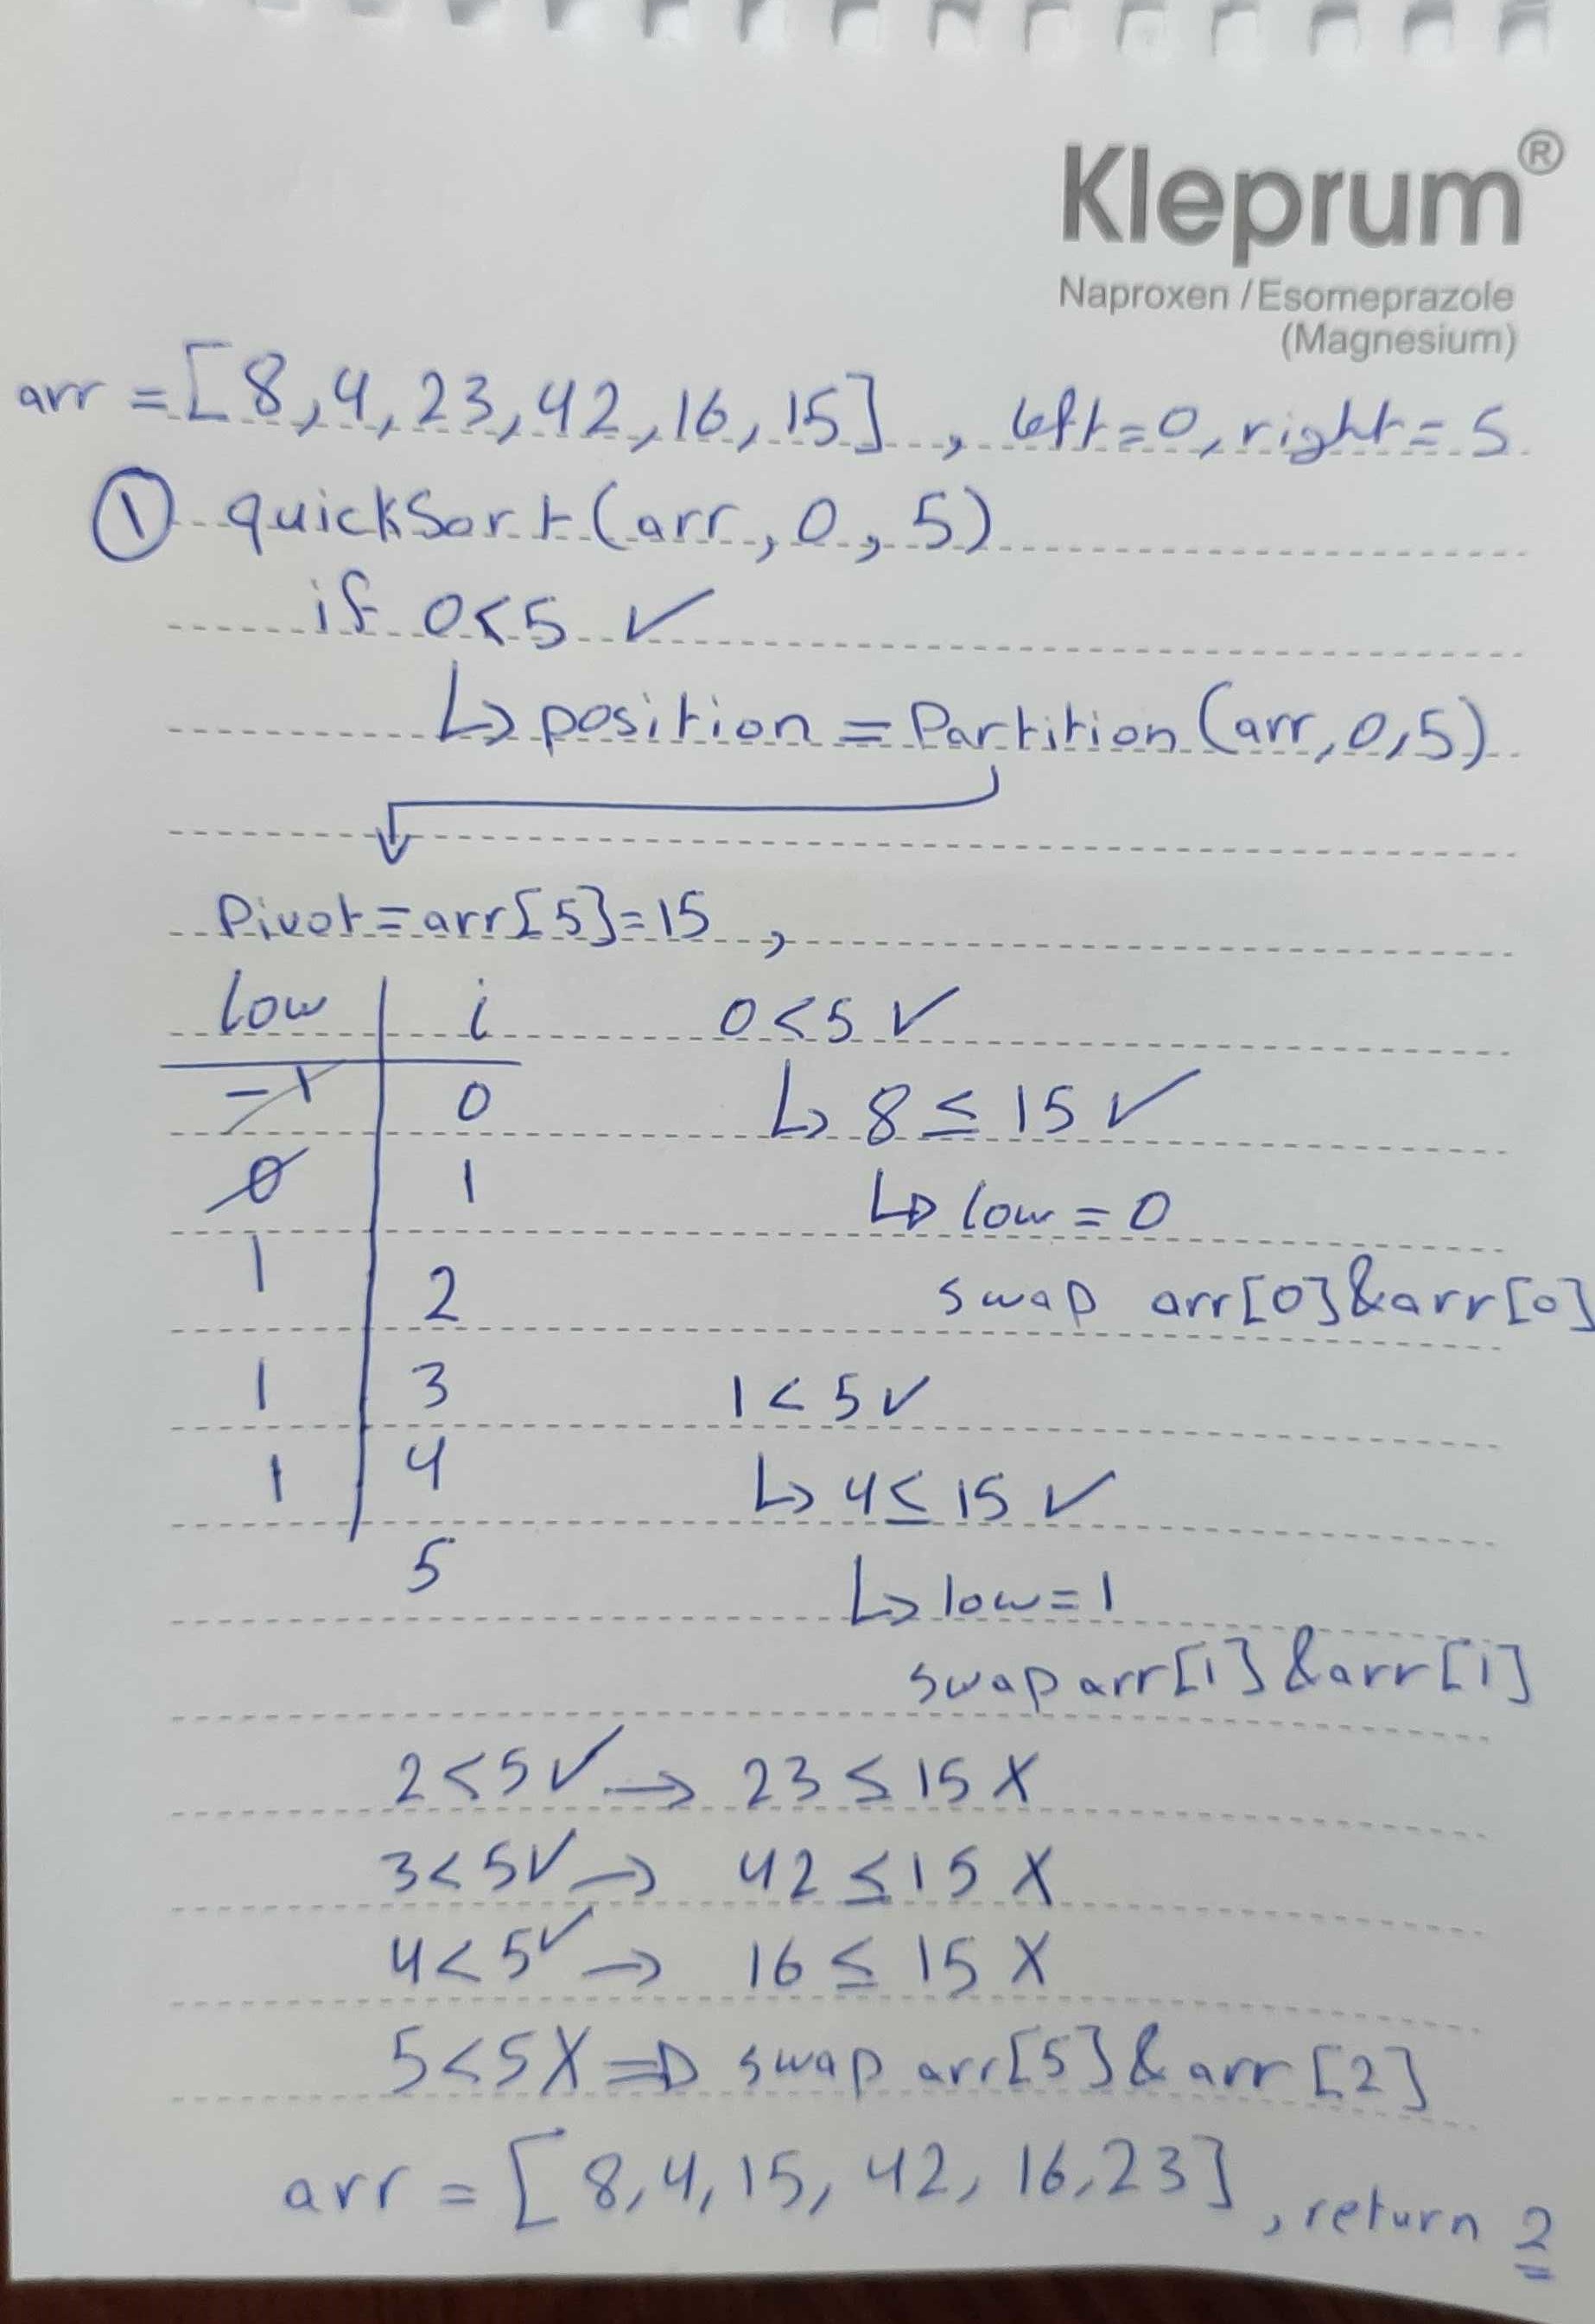 Kleprum®
Naproxen / Esomeprazole
(Magnesium)
arr = [8, 4, 23, 42, 16, 15] , left=0, right=5
① quickSort(arr, 0, 5)
if 0<5 ✓
↳ position = Partition(arr, 0, 5)
Pivot = arr[5]=15 ,
low | i 0<5 ✓
-1 | 0 ↳ 8 ≤ 15 ✓
0 | 1 ↳ low = 0
1 | 2 swap arr[0]&arr[0]
1 | 3 1<5 ✓
1 | 4 ↳ 4 ≤ 15 ✓
5 ↳ low=1
swap arr[1]&arr[1]
2<5 ✓ → 23 ≤ 15 X
3<5 ✓ → 42 ≤ 15 X
4<5 ✓ → 16 ≤ 15 X
5<5 X ⇒ swap arr[5]&arr[2]
arr = [8, 4, 15, 42, 16, 23] , return 2